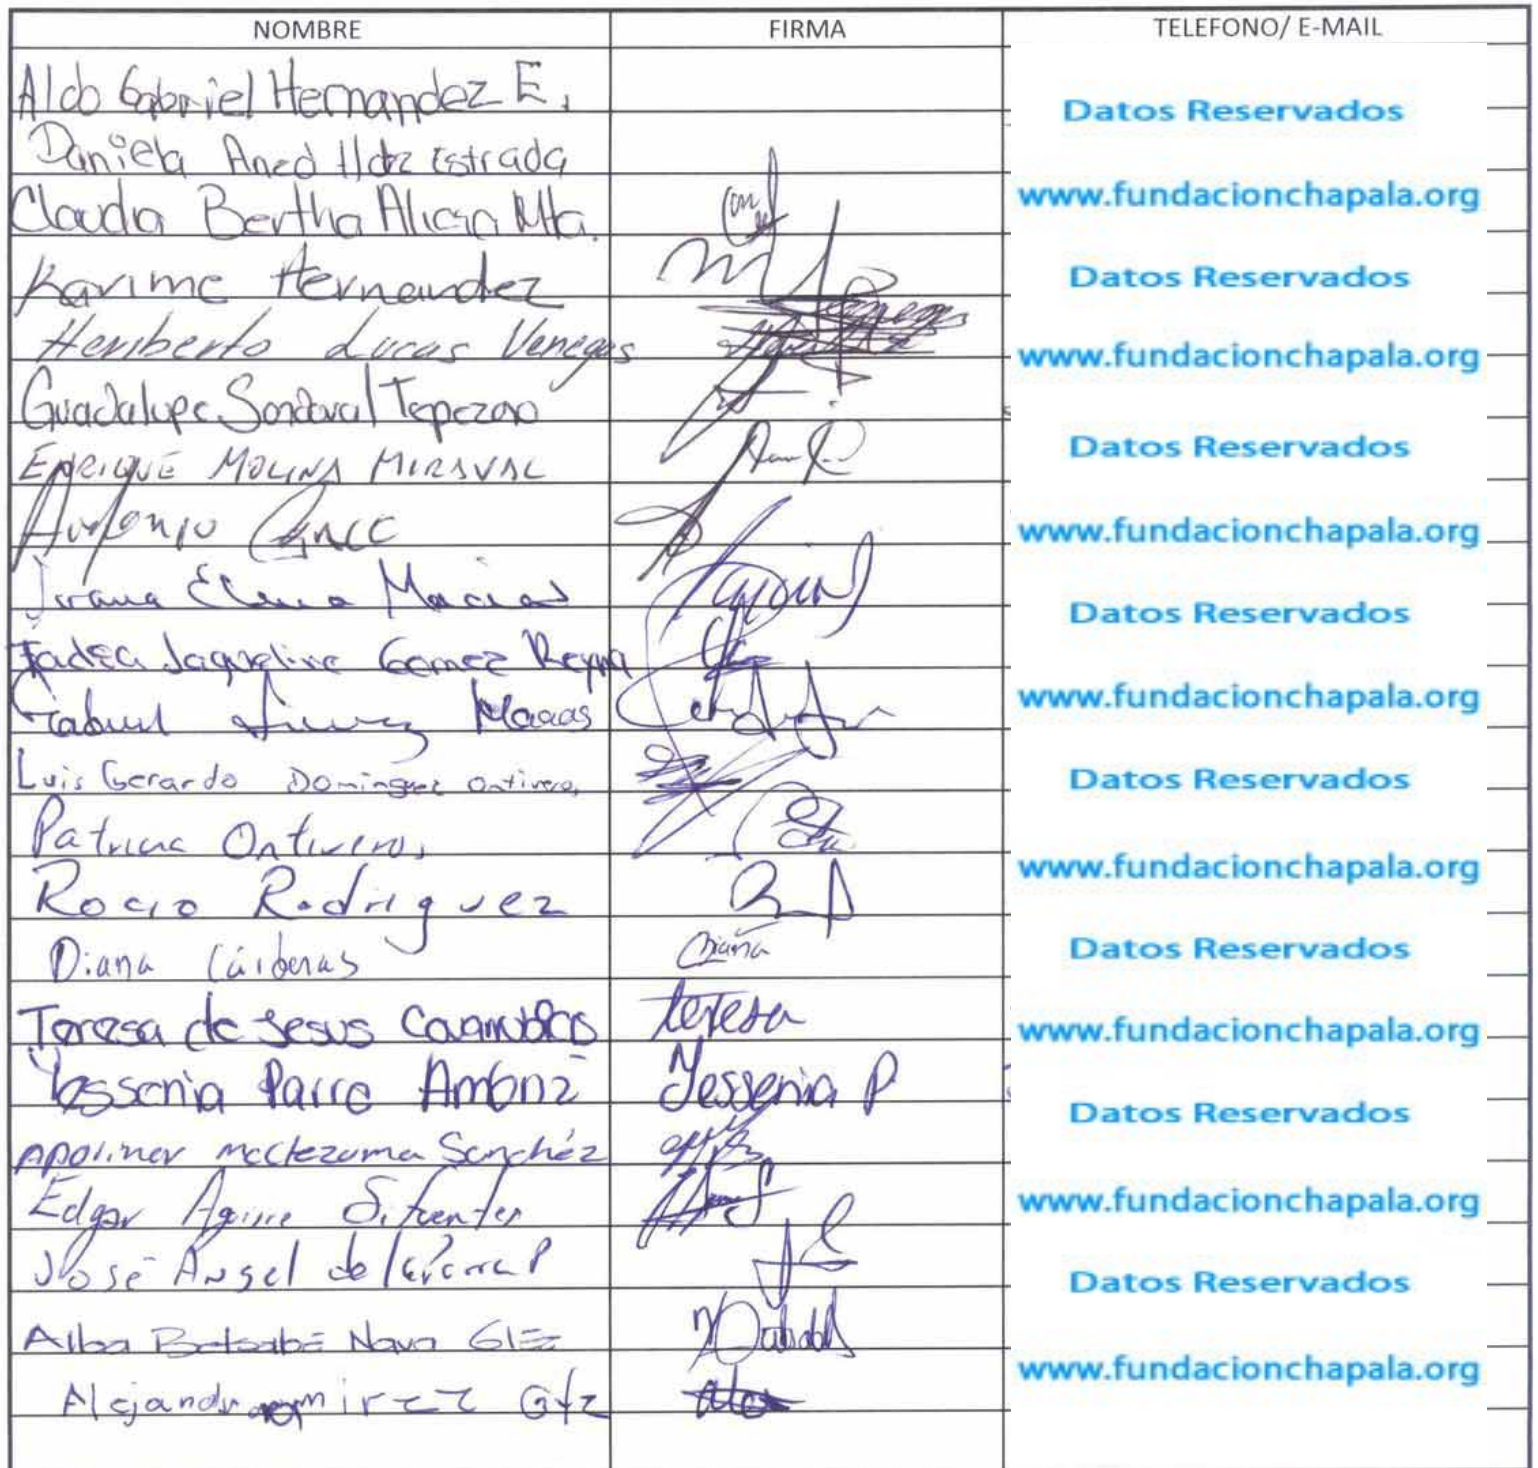 NOMBRE FIRMA TELEFONO/ E-MAIL
Aldo Gabriel Hernandez E.
Datos Reservados
Daniela Aned Hdz Estrada
Claudia Bertha Alicia Mta.
www.fundacionchapala.org
Karime Hernandez
Datos Reservados
Heriberto Lucas Venegas
www.fundacionchapala.org
Guadalupe Sandoval Tepezano
Datos Reservados
ENRIQUE MOLINA MIRAVAL
Antonio
www.fundacionchapala.org
Elena Macias
Datos Reservados
Jaqueline Gomez Reyna
Gabriel
www.fundacionchapala.org
Luis Gerardo Dominguez Ontiveros
Datos Reservados
Patricia Ontiveros
www.fundacionchapala.org
Rocio Rodriguez
Diana Cárdenas Diana
Datos Reservados
Teresa de Jesus Covarrubias teresa
www.fundacionchapala.org
Yessenia Parra Ambriz Yessenia P
Datos Reservados
Apolinar Moctezuma Sanchéz
Edgar Aguirre Sifuentes
www.fundacionchapala.org
José Angel de la Parra P
Datos Reservados
Alba Betsabé Nava Glez
www.fundacionchapala.org